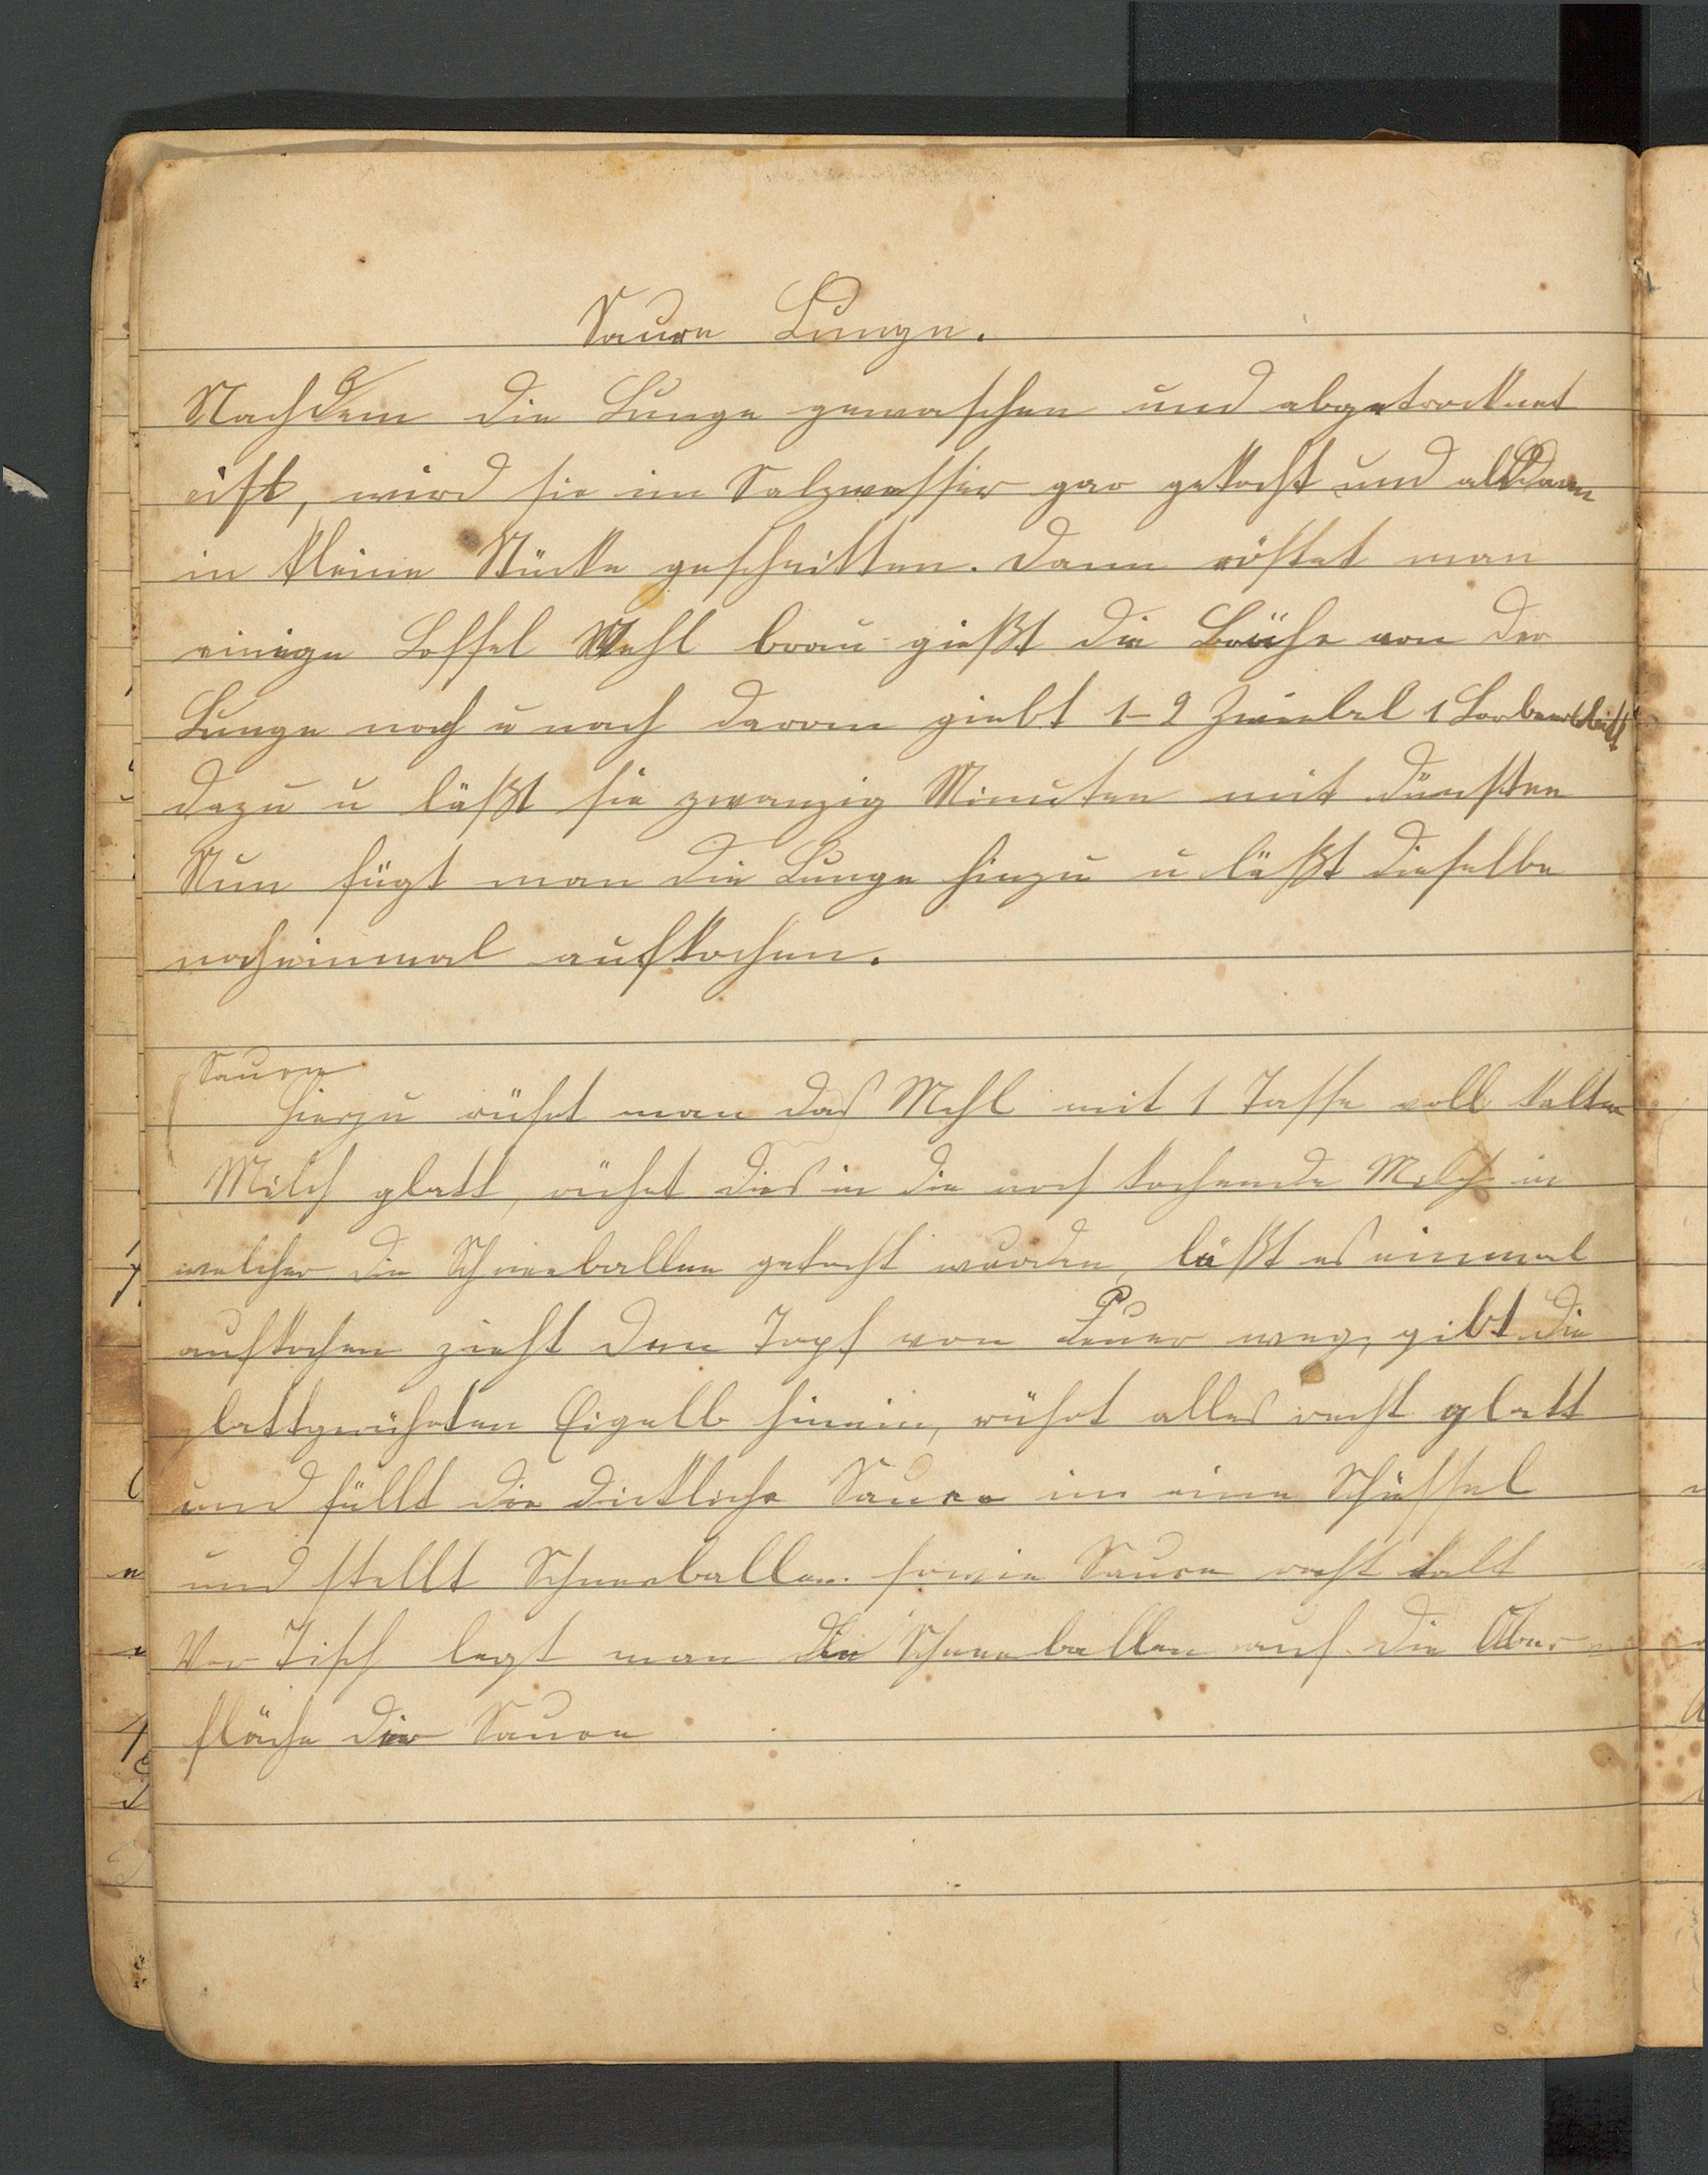 Saure Lunge.
Nachdem die Lunge gewaschen und abgetrocknet
ist, wird sie im Salzwasser gar gekocht und alsdann
in kleine Stücke geschnitten. Dann röstet man
einige Loffel Mehl braun gießt die Brühe von der
Lunge nach u nach daran giebt 1-2 Zwiebel 1 Lorbeerblatt
dazu u läßt sie zwanzig Minuten mit dünsten
Nun fügt man die Lunge hinzu u läßt dieselbe
nocheinmal aufkochen.
Sauce
Hierzu rührt man das Mehl mit 1 Tasse voll kalter
Milch glatt, rührt dies in die noch kochende Milch in
welcher die Schneeballen gekocht wurden, läßt es einmal
aufkochen zieht den Topf von Feuer weg, gibt die
glattgerührten Eigelb hinein, rührt alles recht glatt
und füllt die dickliche Sauce in eine Schüssel
und stellt Schneeballen sowie Sauce recht kalt
Vor Tisch legt man die Schneeballen auf die Ober-
fläche der Sauce